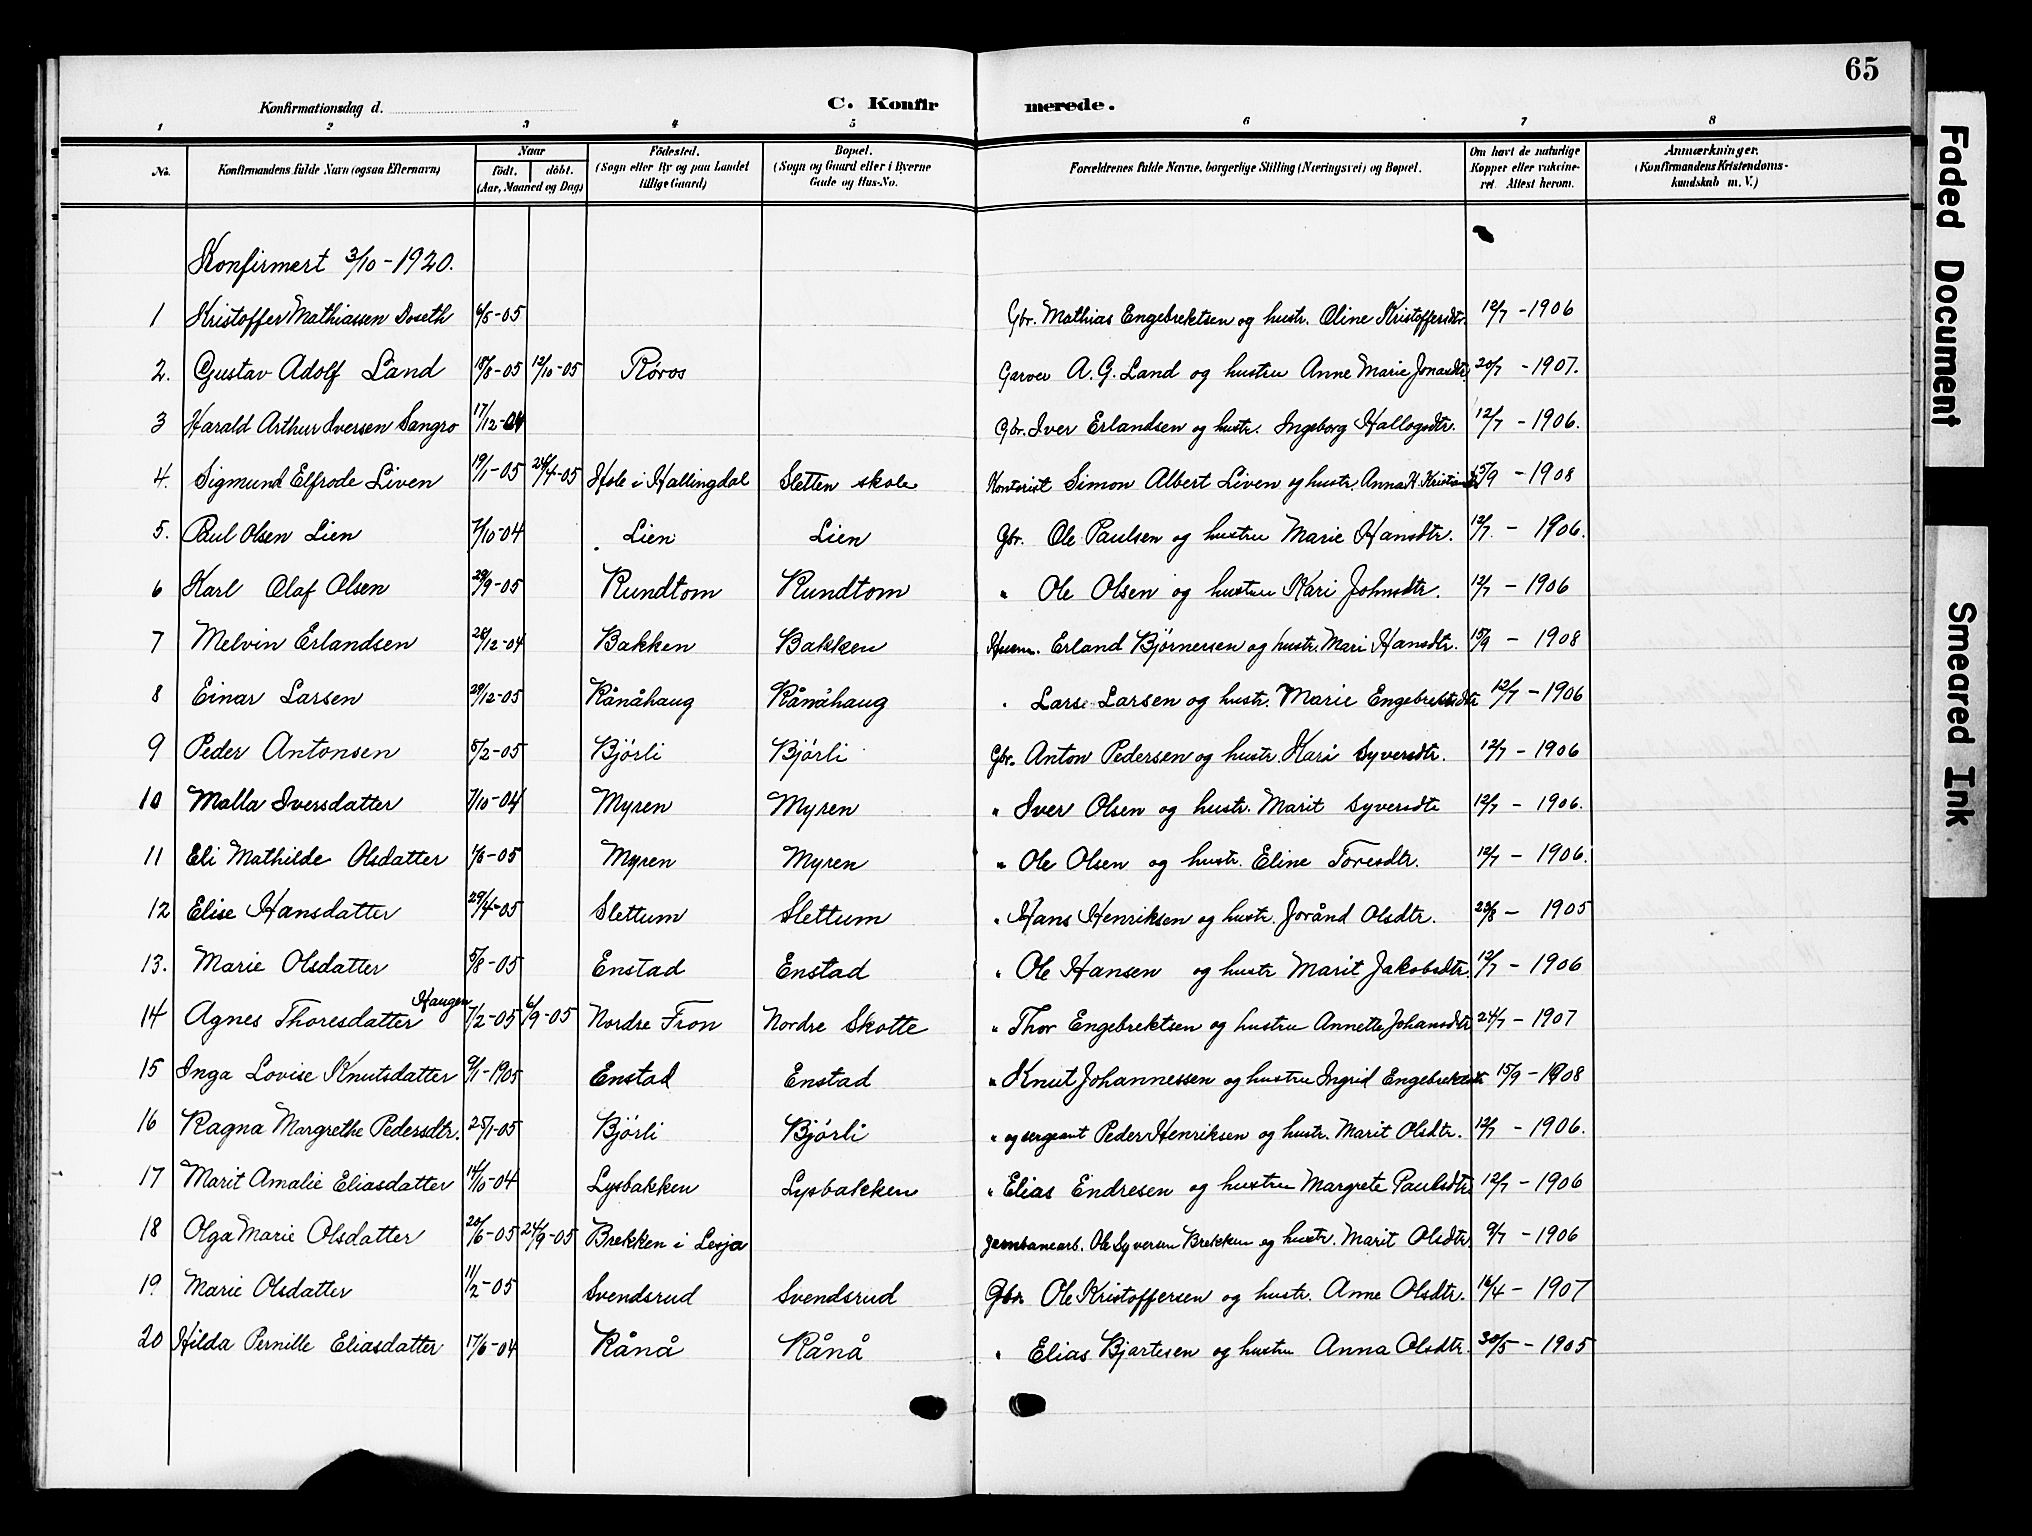 65
Konfirmationsdag d.
C. Konfirmerede.
1 2 3 4 5 6 7 8
No. Konfirmandens fulde Navn (ogsaa Efternavn) Naar født. døbt. (Aar, Maaned og Dag) Fødested. (Sogn eller By og paa Landet tillige Gaard) Bopæl. (Sogn og Gaard eller i Byerne Gade og Hus-No. Forældrenes fulde Navne, borgerlige Stilling (Næringsvei) og Bopæl. Om havt de naturlige Kopper eller vakcineret. Attest herom. Anmærkninger. (Konfirmandens Kristendomskundskab m. V.)
Konfirmert 3/10 - 1920.
1 Kristoffer Mathiassen Doseth 6/5-05 Gbr. Mathias Engebrektsen og hustr. Oline Kristoffersdtr. 12/7 - 1906
2. Gustav Adolf Land 18/8-05 12/10-05 Røros Garver A. G. Land og hustru Anne Marie Jonasdtr. 20/7 - 1907.
3 Harald Arthur Iversen Sangro 17/12-04 Gbr. Iver Erlandsen og hustr. Ingeborg Hallogsdtr. 12/7 - 1906.
4. Sigmund Elfrode Liven 19/1-05 24/4-05 Hole i Hallingdal Sletten skole Kontorist Simon Albert Liven og hustr. Anna K. 15/9 - 1908
5. Paul Olsen Lien 7/10-04 Lien Lien Gbr. Ole Paulsen og hustru Marie Hansdtr. 12/7. - 1906.
6 Karl Olaf Olsen 29/9-05 Rundtom Rundtom " Ole Olsen og hustru Kari Johnsdtr. 12/7 - 1906
7 Melvin Erlandsen 28/12-04 Bakken Bakken Husm. Erland Bjørnersen og hustr. Mari Hansdtr. 15/9 - 1908
8 Einar Larsen 29/12-05 Rånåhaug Rånåhaug " Lars Larsen og hustr. Marie Engebrektsdtr 12/7 - 1906
9 Peder Antonsen 5/2-05 Bjórli Bjórli Gbr. Anton Pedersen og hustr. Kari Syversdtr. 12/7 - 1906
10 Malla Iversdatter 7/10-04 Myren Myren " Iver Olsen og hustr. Marit Syversdtr 12/7 - 1906.
11 Eli Mathilde Olsdatter 1/6-05 Myren Myren " Ole Olsen og hustr. Eline Toresdtr. 12/7 - 1906.
12 Elise Hansdatter 29/4-05 Slettum Slettum " Hans Henriksen og hustr. Jorånd Olsdtr. 23/8 - 1905
13. Marie Olsdatter 5/8-05 Enstad Enstad " Ole Hansen og hustr Marit Jakobsdtr. 12/7 - 1906
14 Agnes Thoresdatter Haugen 7/2-05 6/9-05 Nordre Fron Nordre Skotte " Thor Engebrektsen og hustru Annette Johansdtr 24/7 - 1907
15 Inga Lovise Knutsdatter 9/1-1905 Enstad Enstad " Knut Johannessen og hustru Ingrid Engebrektsdtr 15/9 - 1908
16 Ragna Margrethe Pedersdtr. 25/1-05 Bjórli Bjórli " og sergeant Peder Henriksen og hustr. Marit Olsdtr. 12/7 - 1906.
17 Marit Amalie Eliasdatter 14/10-04 Lysbakken Lysbakken " Elias Endresen og hustru Margrete Paulsdtr 12/7 - 1906
18 Olga Marie Olsdatter 20/6-05 24/9-05 Brekken i Lesja Jernbanearb. Ole Syversen Brekken og hustr. Marit Olsdtr. 9/7 - 1906
19 Marie Olsdatter 11/2-05 Svendsrud Svendsrud Gbr. Ole Kristoffersen og hustr. Anne Olsdtr. 16/4 - 1907
20 Hilda Pernille Eliasdatter 17/6-04 Rånå Rånå " Elias Bjartesen og hustru Anna Olsdtr. 30/5 - 1905
Faded Document
Smeared Ink